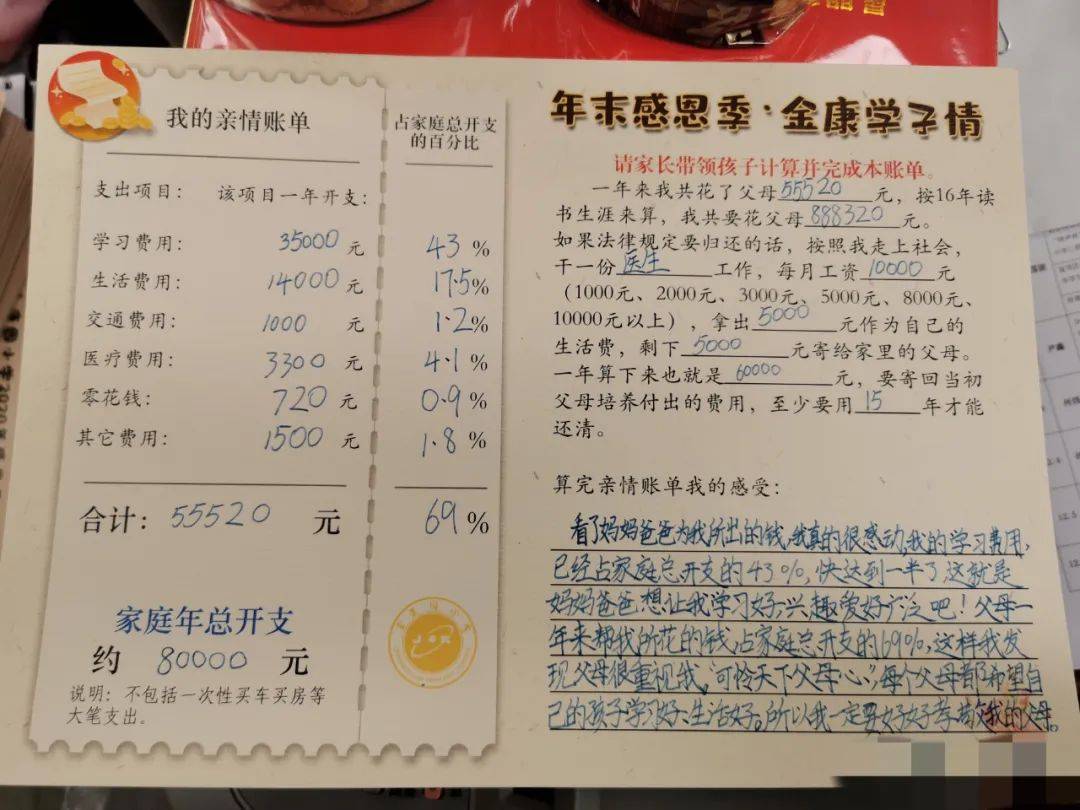 我的亲情账单
占家庭总开支
的百分比
支出项目： 该项目一年开支：
学习费用： 35000 元 43 %
生活费用： 14000 元 17.5%
交通费用： 1000 元 1.2%
医疗费用： 3300 元 4.1 %
零花钱： 720 元 0.9 %
其它费用： 1500 元 1.8 %
合计： 55520 元 69 %
家庭年总开支
约 80000 元
说明：不包括一次性买车买房等
大笔支出。
年末感恩季·金康学子情
请家长带领孩子计算并完成本账单。
一年来我共花了父母55520元，按16年读
书生涯来算，我共要花父母888320元。
如果法律规定要归还的话，按照我走上社会，
干一份医生工作，每月工资10000元
（1000元、2000元、3000元、5000元、8000元、
10000元以上），拿出5000元作为自己的
生活费，剩下5000元寄给家里的父母。
一年算下来也就是60000元，要寄回当初
父母培养付出的费用，至少要用15年才能
还清。
算完亲情账单我的感受：
看了妈妈爸爸为我所出的钱，我真的很感动，我的学习费用，
已经占家庭总开支的43%，快达到一半了，这就是
妈妈爸爸想让我学习好，兴趣爱好广泛吧！父母一
年来帮我所花的钱，占家庭总开支的69%，这样我发
现父母很重视我，“可怜天下父母心”，每个父母都希望自
己的孩子学习好、生活好。所以我一定要好好孝敬我的父母。